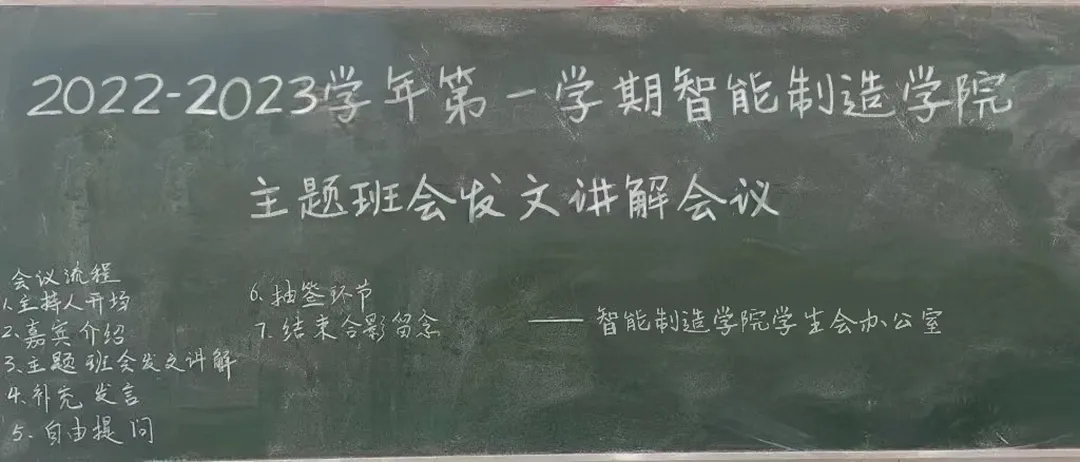 2022-2023学年第一学期智能制造学院
主题班会发文讲解会议
会议流程
1.主持人开场
2.嘉宾介绍
3.主题班会发文讲解
4.补充发言
5.自由提问
6.抽签环节
7.结束合影留念
——智能制造学院学生会办公室